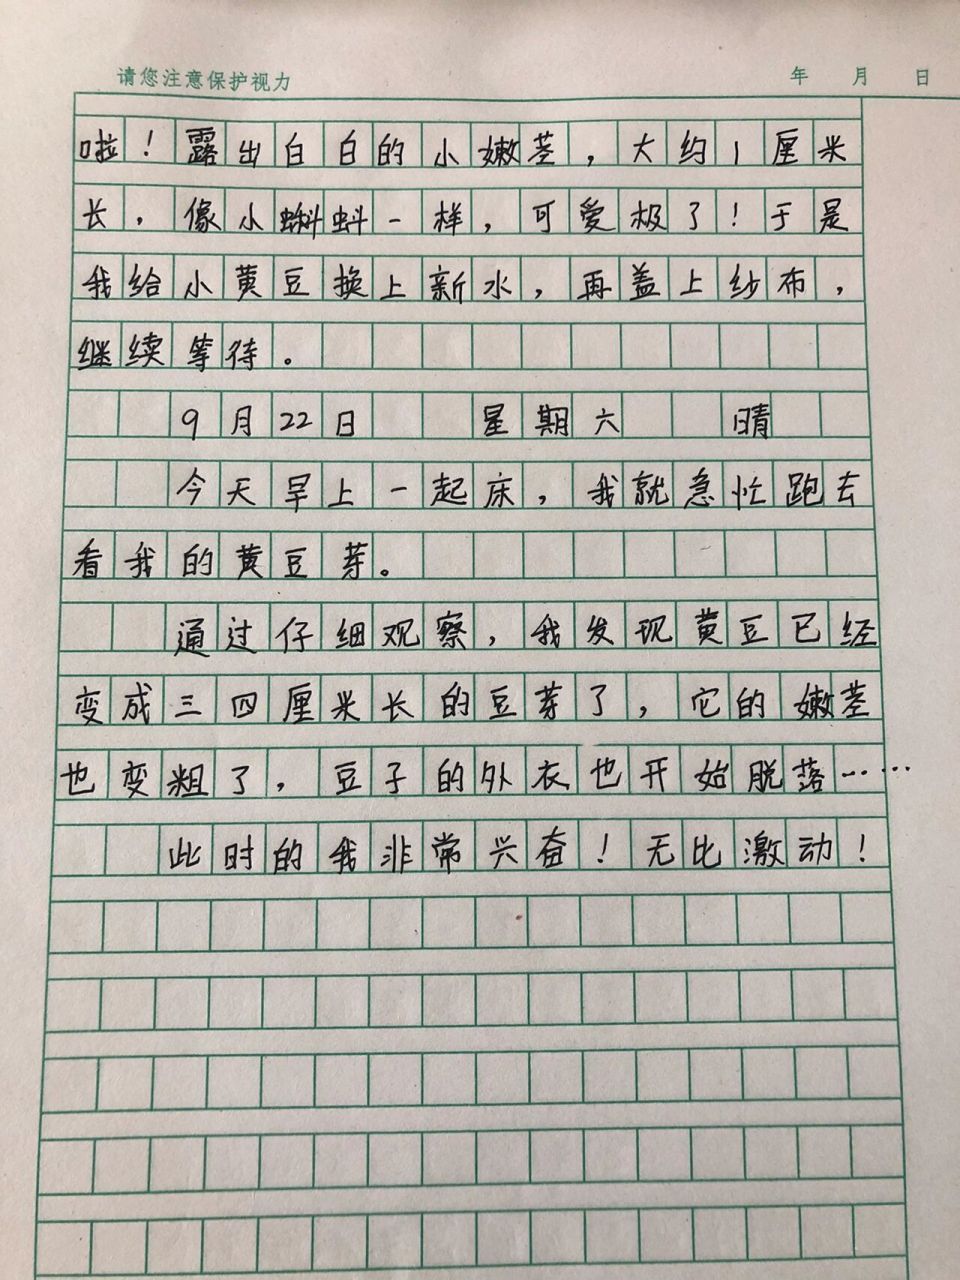 请您注意保护视力 年 月 日
啦！露出白白的小嫩茎，大约1厘米
长，像小蝌蚪一样，可爱极了！于是
我给小黄豆换上新水，再盖上纱布，
继续等待。
9月22日 星期六 晴
今天早上一起床，我就急忙跑去
看我的黄豆芽。
通过仔细观察，我发现黄豆已经
变成三四厘米长的豆芽了，它的嫩茎
也变粗了，豆子的外衣也开始脱落……
此时的我非常兴奋！无比激动！